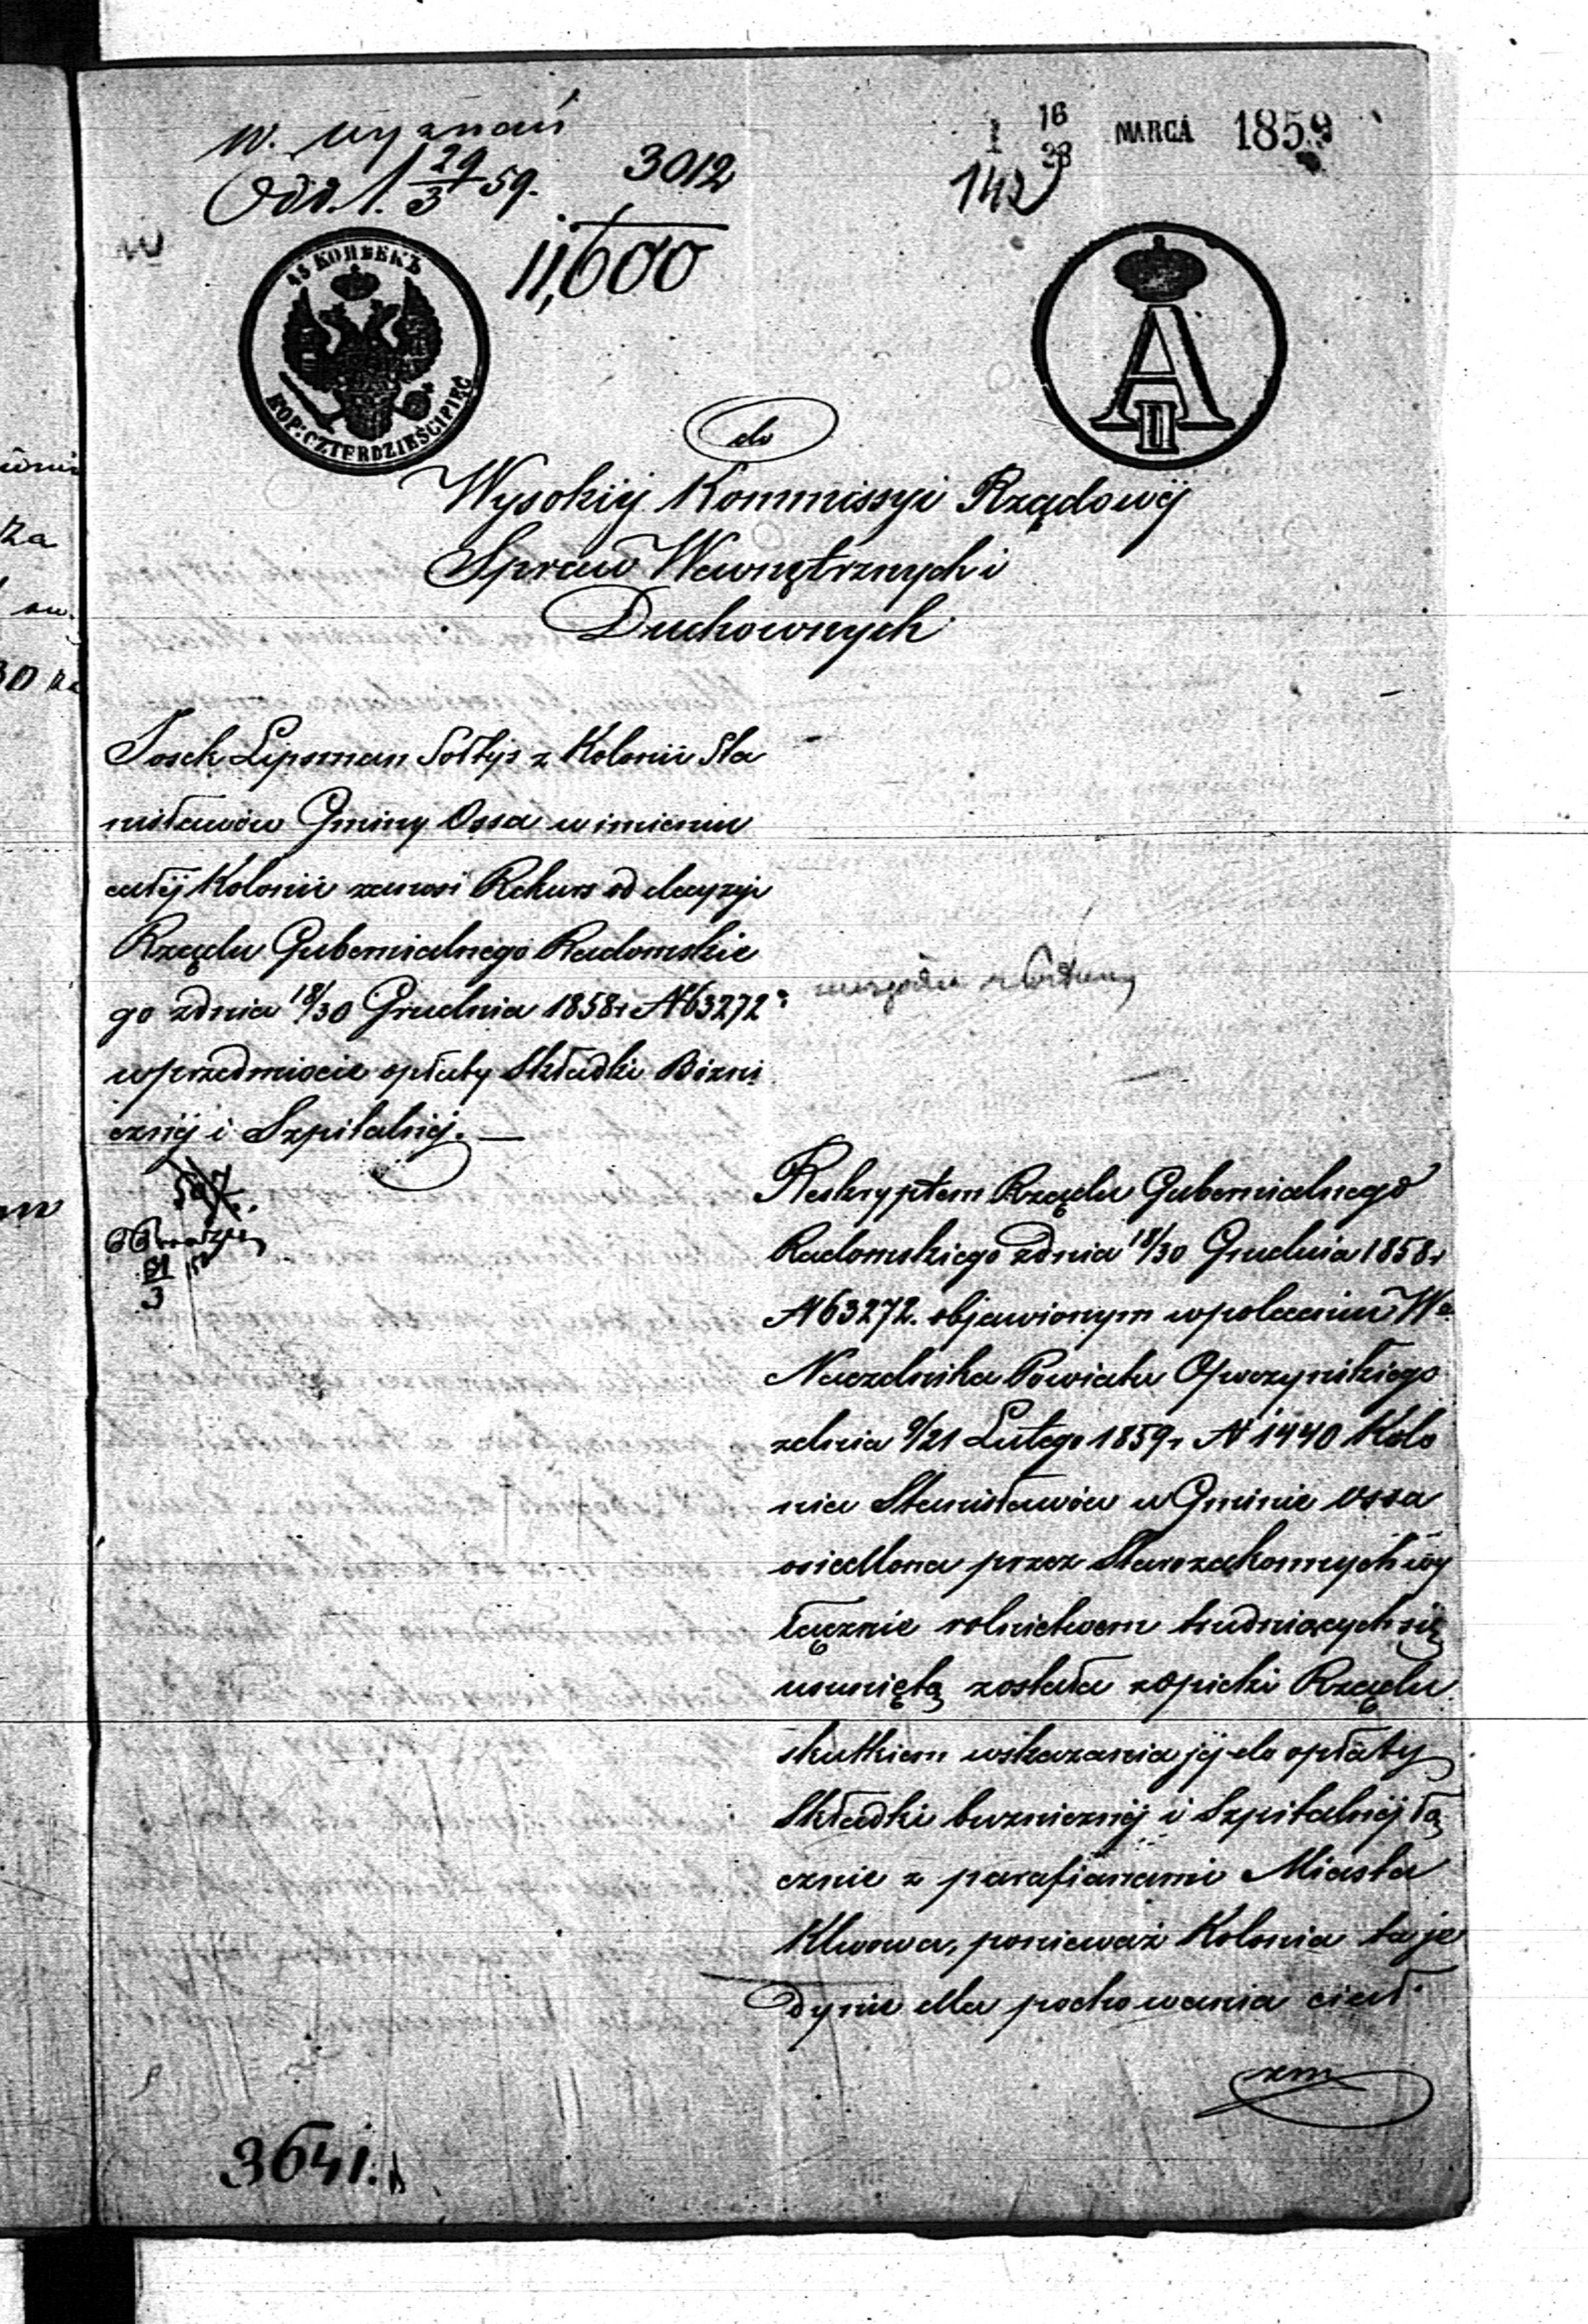 W. wyznań
Odd. 1. 29/3 59.
3012
11,600
16
28 MARCA 1859
142
45 КОПѢЕКЪ
KOP: CZTERDZIEŚCI PIĘĆ
A II
do
Wysokiéj Kommissyi Rządowéj
Spraw Wewnętrznych i
Duchownych
Josek Lipsman Sołtys z Kolonii Sta
nisławów Gminy Ossa w imieniu
całéj Kolonii zanosi Rekurs od decyzyi
Rządu Gubernialnego Radomskie
go zdnia 18/30 Grudnia 1858r N 63272
w przedmiocie opłaty Składki Bożni
cznéj i Szpitalnéj. —
21/3
Reskryptem Rządu Gubernialnego
Radomskiego zdnia 18/30 Grudnia 1858r
N 63272. objawionym w poleceniu We
Naczelnika Powiatu Opoczyńskiego
zdnia 9/21 Lutego 1859r N 1440 Kolo
nia Stanisławów w Gminie Ossa
osiedlona przez Starozakonnych wy
łącznie rolnictwem trudniących się
usuniętą została z opieki Rządu
skutkiem wskazania jéj do opłaty
Składki buznicznéj i Szpitalnéj łą
cznie z parafianami Miasta
Klwowa, ponieważ Kolonia ta je
dynie dla pochowania ciał
zm
3641.